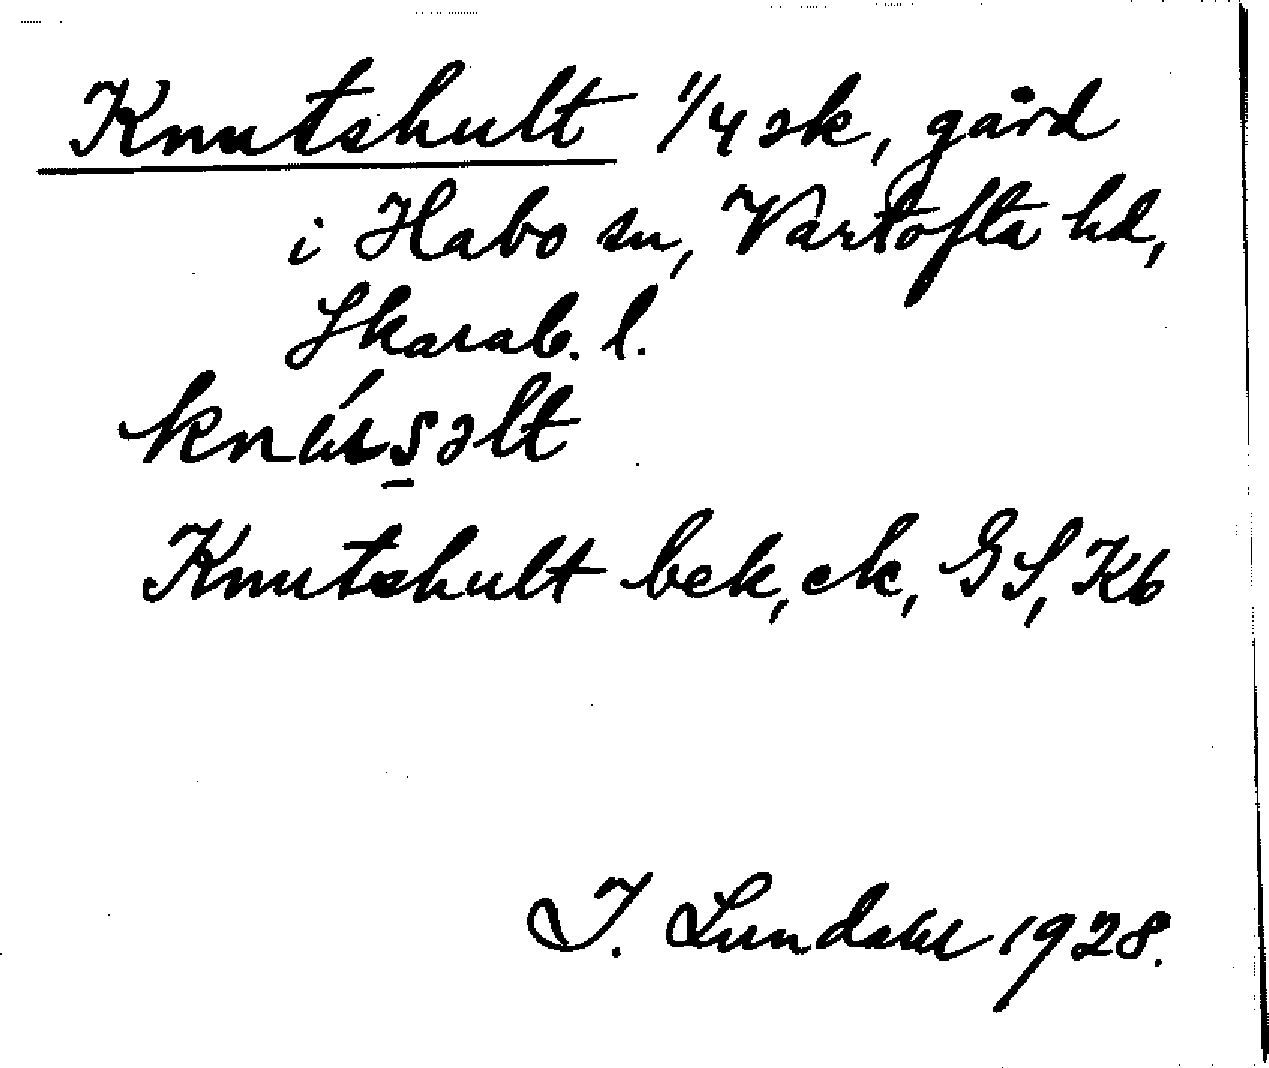 Knutshult 1/4 sk, gård
i Habo sn, Vartofta hd,
Skarab. l.
knúsəlt
Knutshult bek, ek, GS, Kb
I. Lundahl 1928.